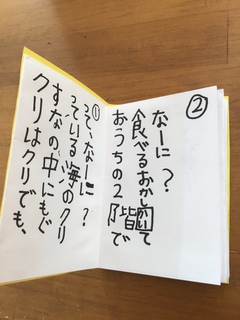 ①
クリはクリでも、
すなの中にもぐ
っている海のクリ
って、なーに？
②
おうちの2階で
食べるおかして
なーに？